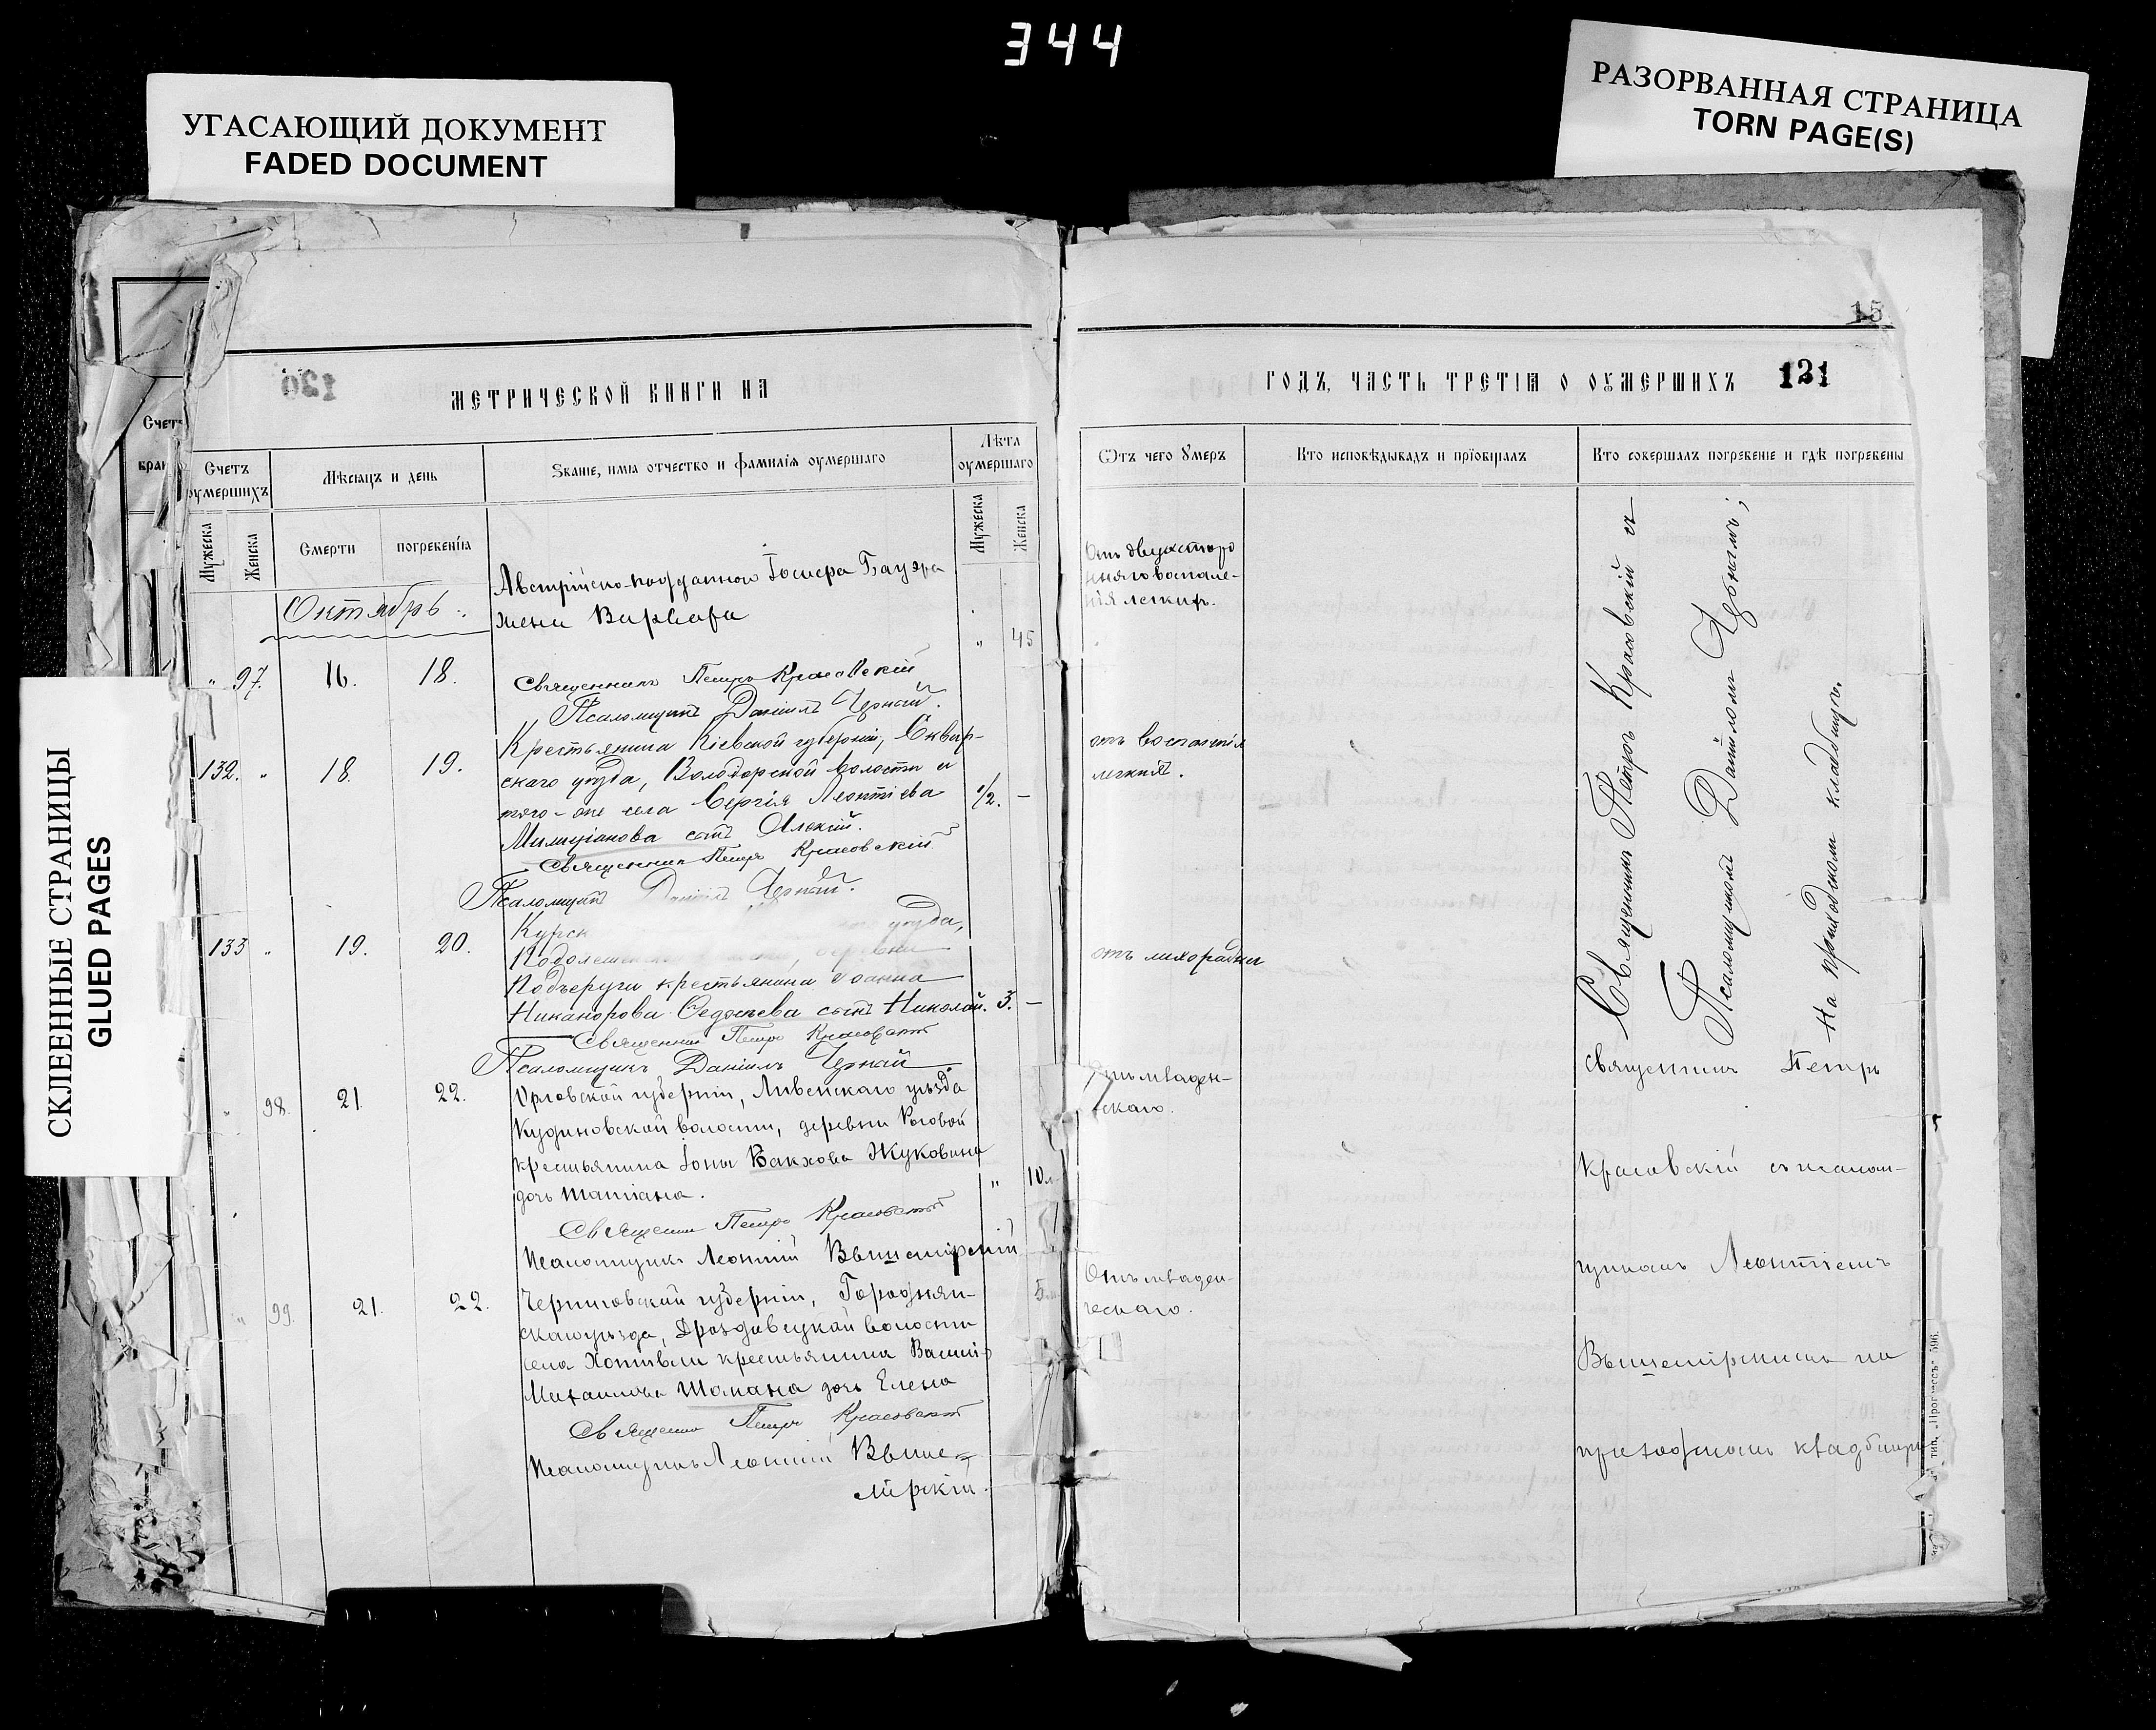 344
УГАСАЮЩИЙ ДОКУМЕНТ
FADED DOCUMENT
РАЗОРВАННАЯ СТРАНИЦА
TORN PAGE(S)
СКЛЕЕННЫЕ СТРАНИЦЫ
GLUED PAGES
120
МЕТРИЧЕСКОЙ КНИГИ НА
Счетъ оумершихъ
Мѣсяцъ и день
Званіе, имя отчество и фамилія оумершаго
Лѣта оумершаго
Мужеска
Женска
Смерти
погребенія
Мужеска
Женска
Октябрь.
Австрійско-подданнаго Іосифа Бауэра
жена Варвара
" 45
" 97. 16. 18.
Священникъ Петръ Красовскій
Псаломщикъ Даніилъ Черный.
132. " 18. 19.
Крестьянина Кіевской губерніи, Сквир-
скаго уѣзда, Володарской волости и
того-же села Сергія Леонтіева
1/2. –
сынъ Алексій.
Священникъ Петръ Красовскій
Псаломщикъ Даніилъ Черный.
133 " 19. 20.
Курск уѣзда,
деревни
крестьянина Іоанна
Никанорова Федосѣева сынъ Николай. 3. –
Священникъ Петръ Красовскій
Псаломщикъ Даніилъ Черный
" 98. 21. 22.
Орловской губерніи, Ливенскаго уѣзда
Кудиновской волости, деревни Роговой
крестьянина Іоны Вакхова Жуковина
дочь Татіана.
" 10
Священникъ Петръ Красовскій
Псаломщикъ Леонтій Вышемірскій
" 99. 21. 22.
Черниговской губерніи, Городнян-
скаго уѣзда, Дроздовецкой волости
села Хотивли крестьянина
Михаилова Шапана дочь Елена
5
Священникъ Петръ Красовскій
Псаломщикъ Леонтій Выше-
мірскій.
15
ГОДЪ, ЧАСТЬ ТРЕТІЯ О ОУМЕРШИХЪ
121
Ѿтъ чего Умеръ
Кто исповѣдывалъ и пріобщалъ
Кто совершалъ погребеніе и гдѣ погребены
Отъ двухсторо
ннаго воспале-
нія легкихъ.
отъ воспаленія
легкихъ.
отъ лихорадки
Отъ младен-
ческаго.
Отъ младен-
ческаго.
Священникъ Петръ Красовскій съ
Псаломщикомъ Даніиломъ Чернымъ;
На приходскомъ кладбищѣ.
Священникъ Петръ
Красовскій съ псалом-
щикомъ Леонтіемъ
Вышемірскимъ на
приходскомъ кладбищѣ
тип. „Прогрессъ"